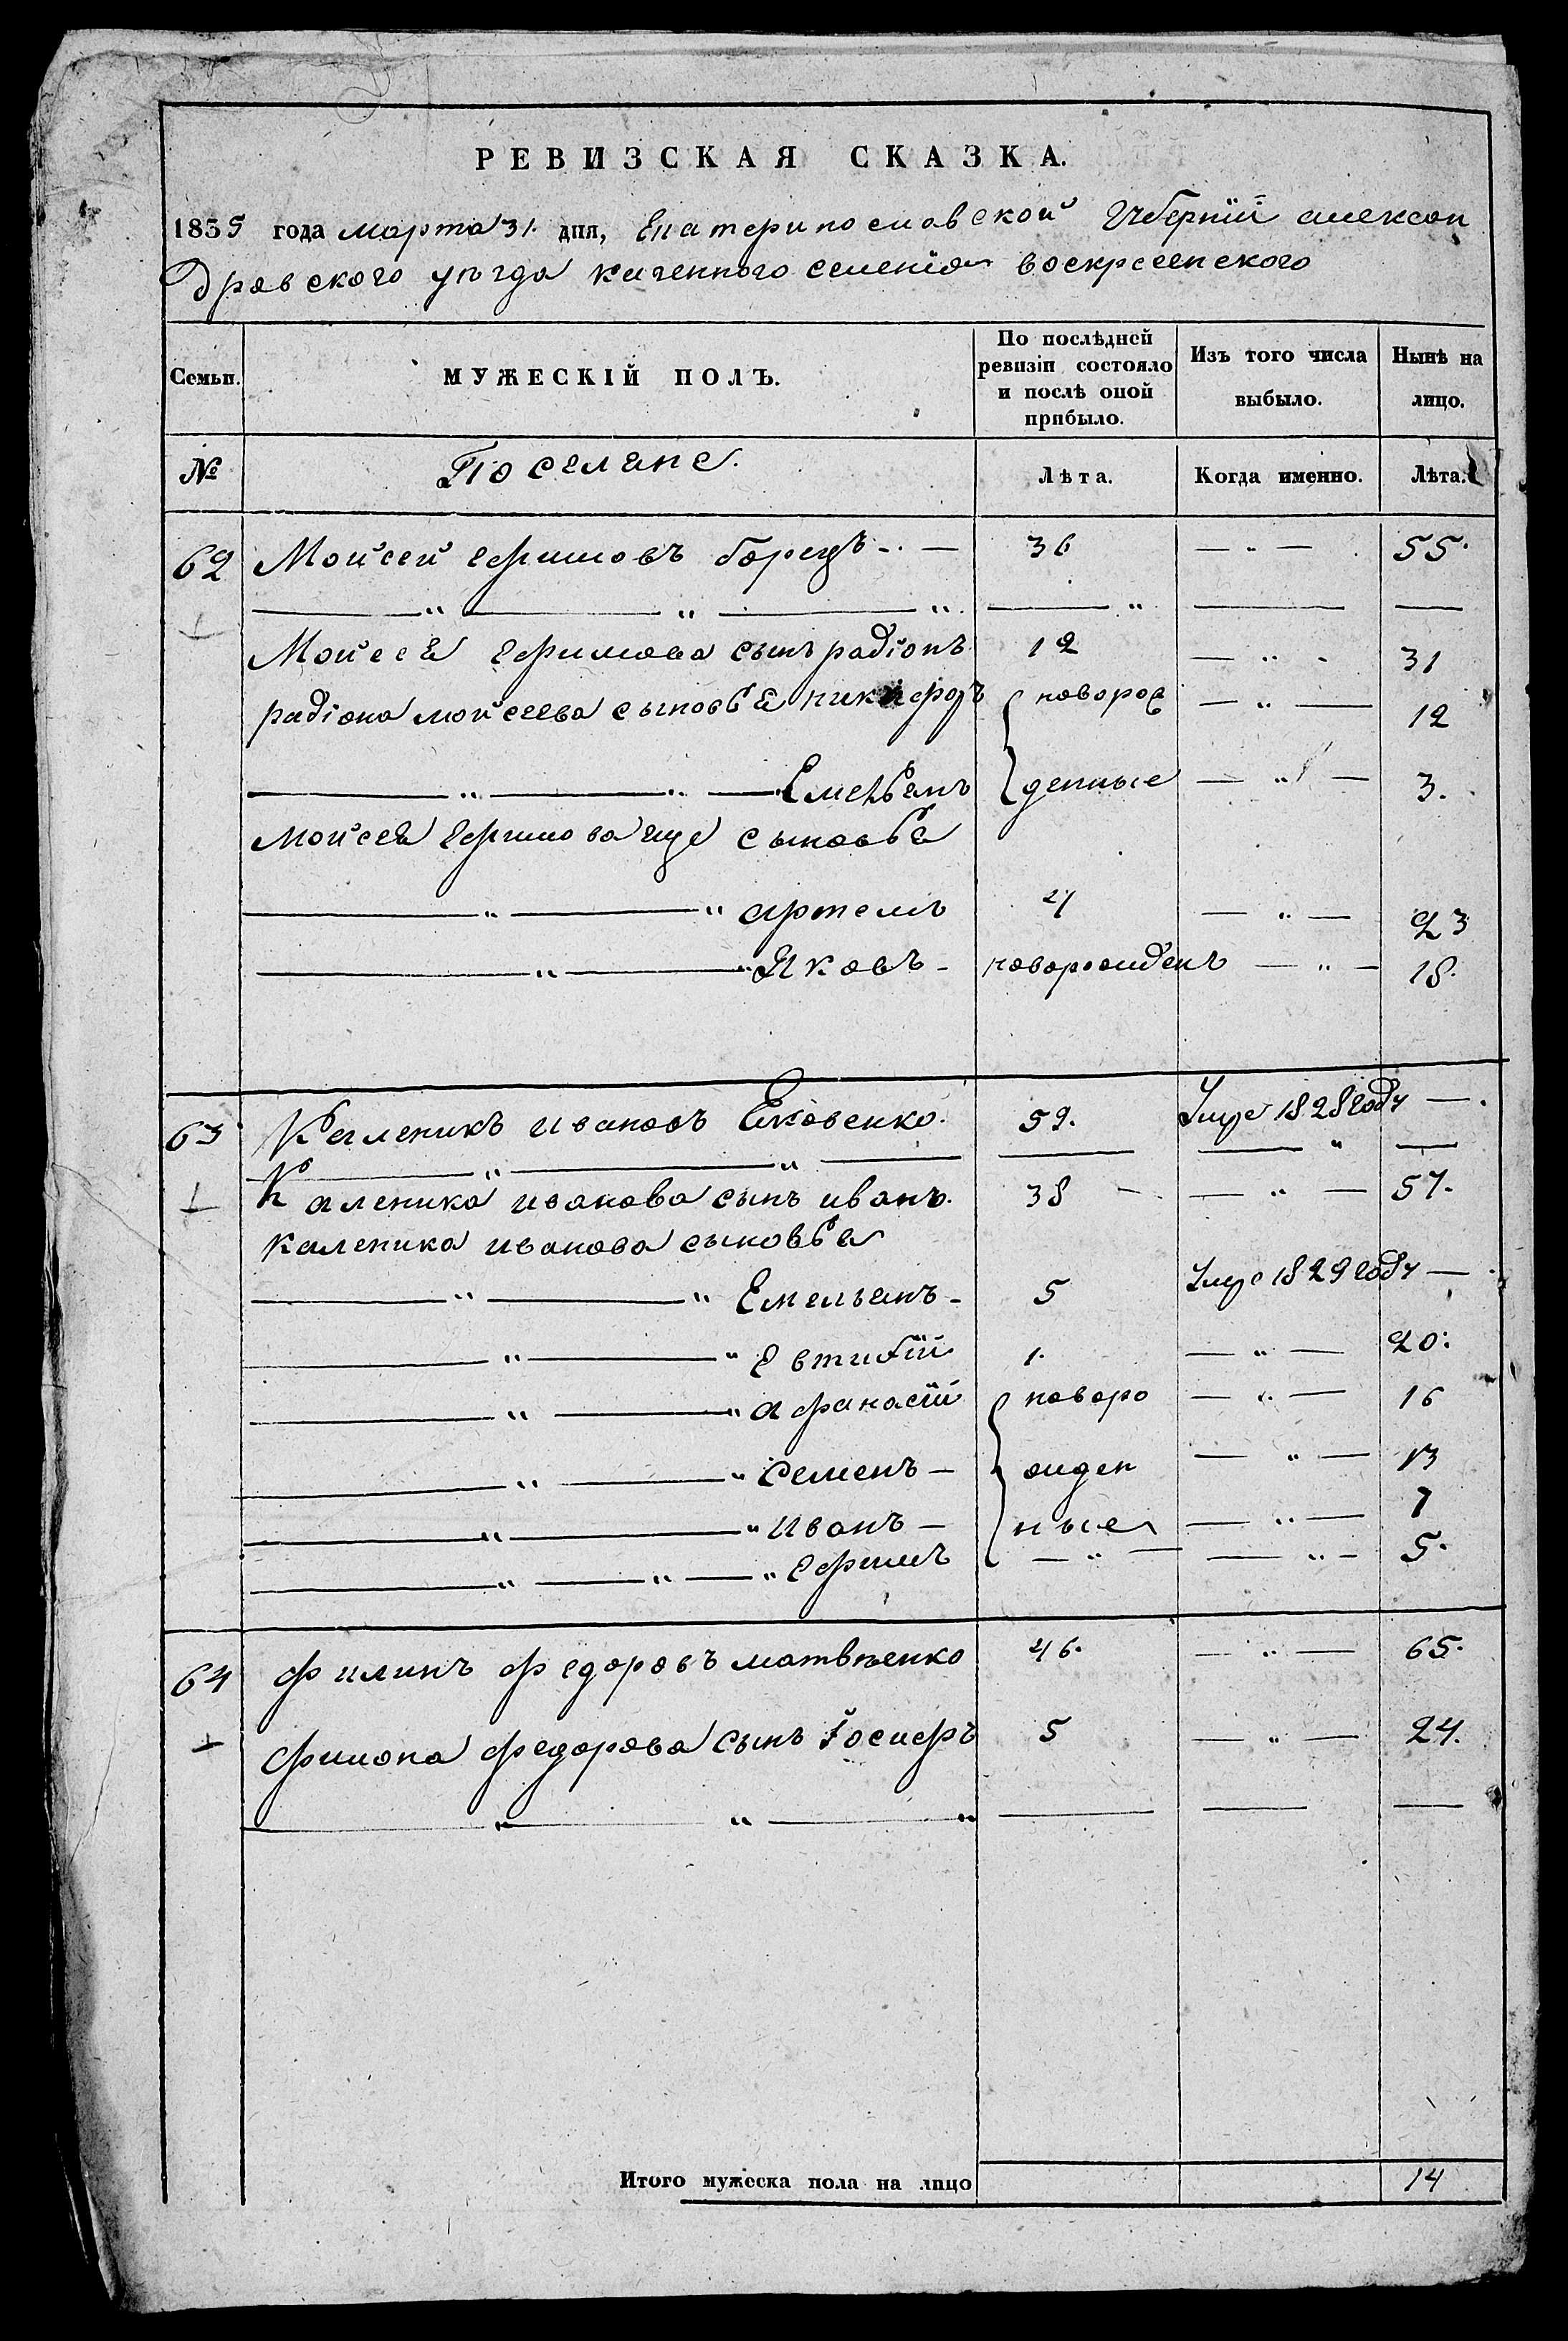 РЕВИЗСКАЯ СКАЗКА.
1835 года марта 31. дня, Екатеринославской Губернїи алексан
дравского уѣзда казенного селенїя воскресенского
Семьи. МУЖЕСКІЙ ПОЛЪ. По послѣдней ревизіи состояло и послѣ оной прибыло. Изъ того числа выбыло. Нынѣ на лицо.
№ Поселяне. Лѣта. Когда именно. Лѣта.
62 Мойсей ефимовъ борецъ - . — 36 — „ — 55.
Мойсея ефимова сынъ радіонъ 12 — „ - 31
радіона мойсеева сыновья никифоръ новорож — „ — 12
Емельянъ денные — „ — 3.
мойсея ефимова еще сыновья
артемъ 4 — „ — 23
Яковъ - новорожденъ — „ — 18.
63 Каленикъ ивановъ Яковенко. 59. Умре 1828 году — .
Каленика иванова сынъ иванъ. 38 — — „ — 57.
каленика иванова сыновья
Емельянъ - 5 Умре 1829 году —
Евтифїй 1. — „ — 20.
афанасїй новоро — „ — 16
Семенъ — жден — „ — 13
Иванъ — ные — „ — 7
ефимъ — „ — — „ — 5.
64 филипъ федоровъ матвѣенко 46. — „ — 65.
филипа федорова сынъ Іосифъ 5 — „ — 24.
Итого мужеска пола на лицо 14